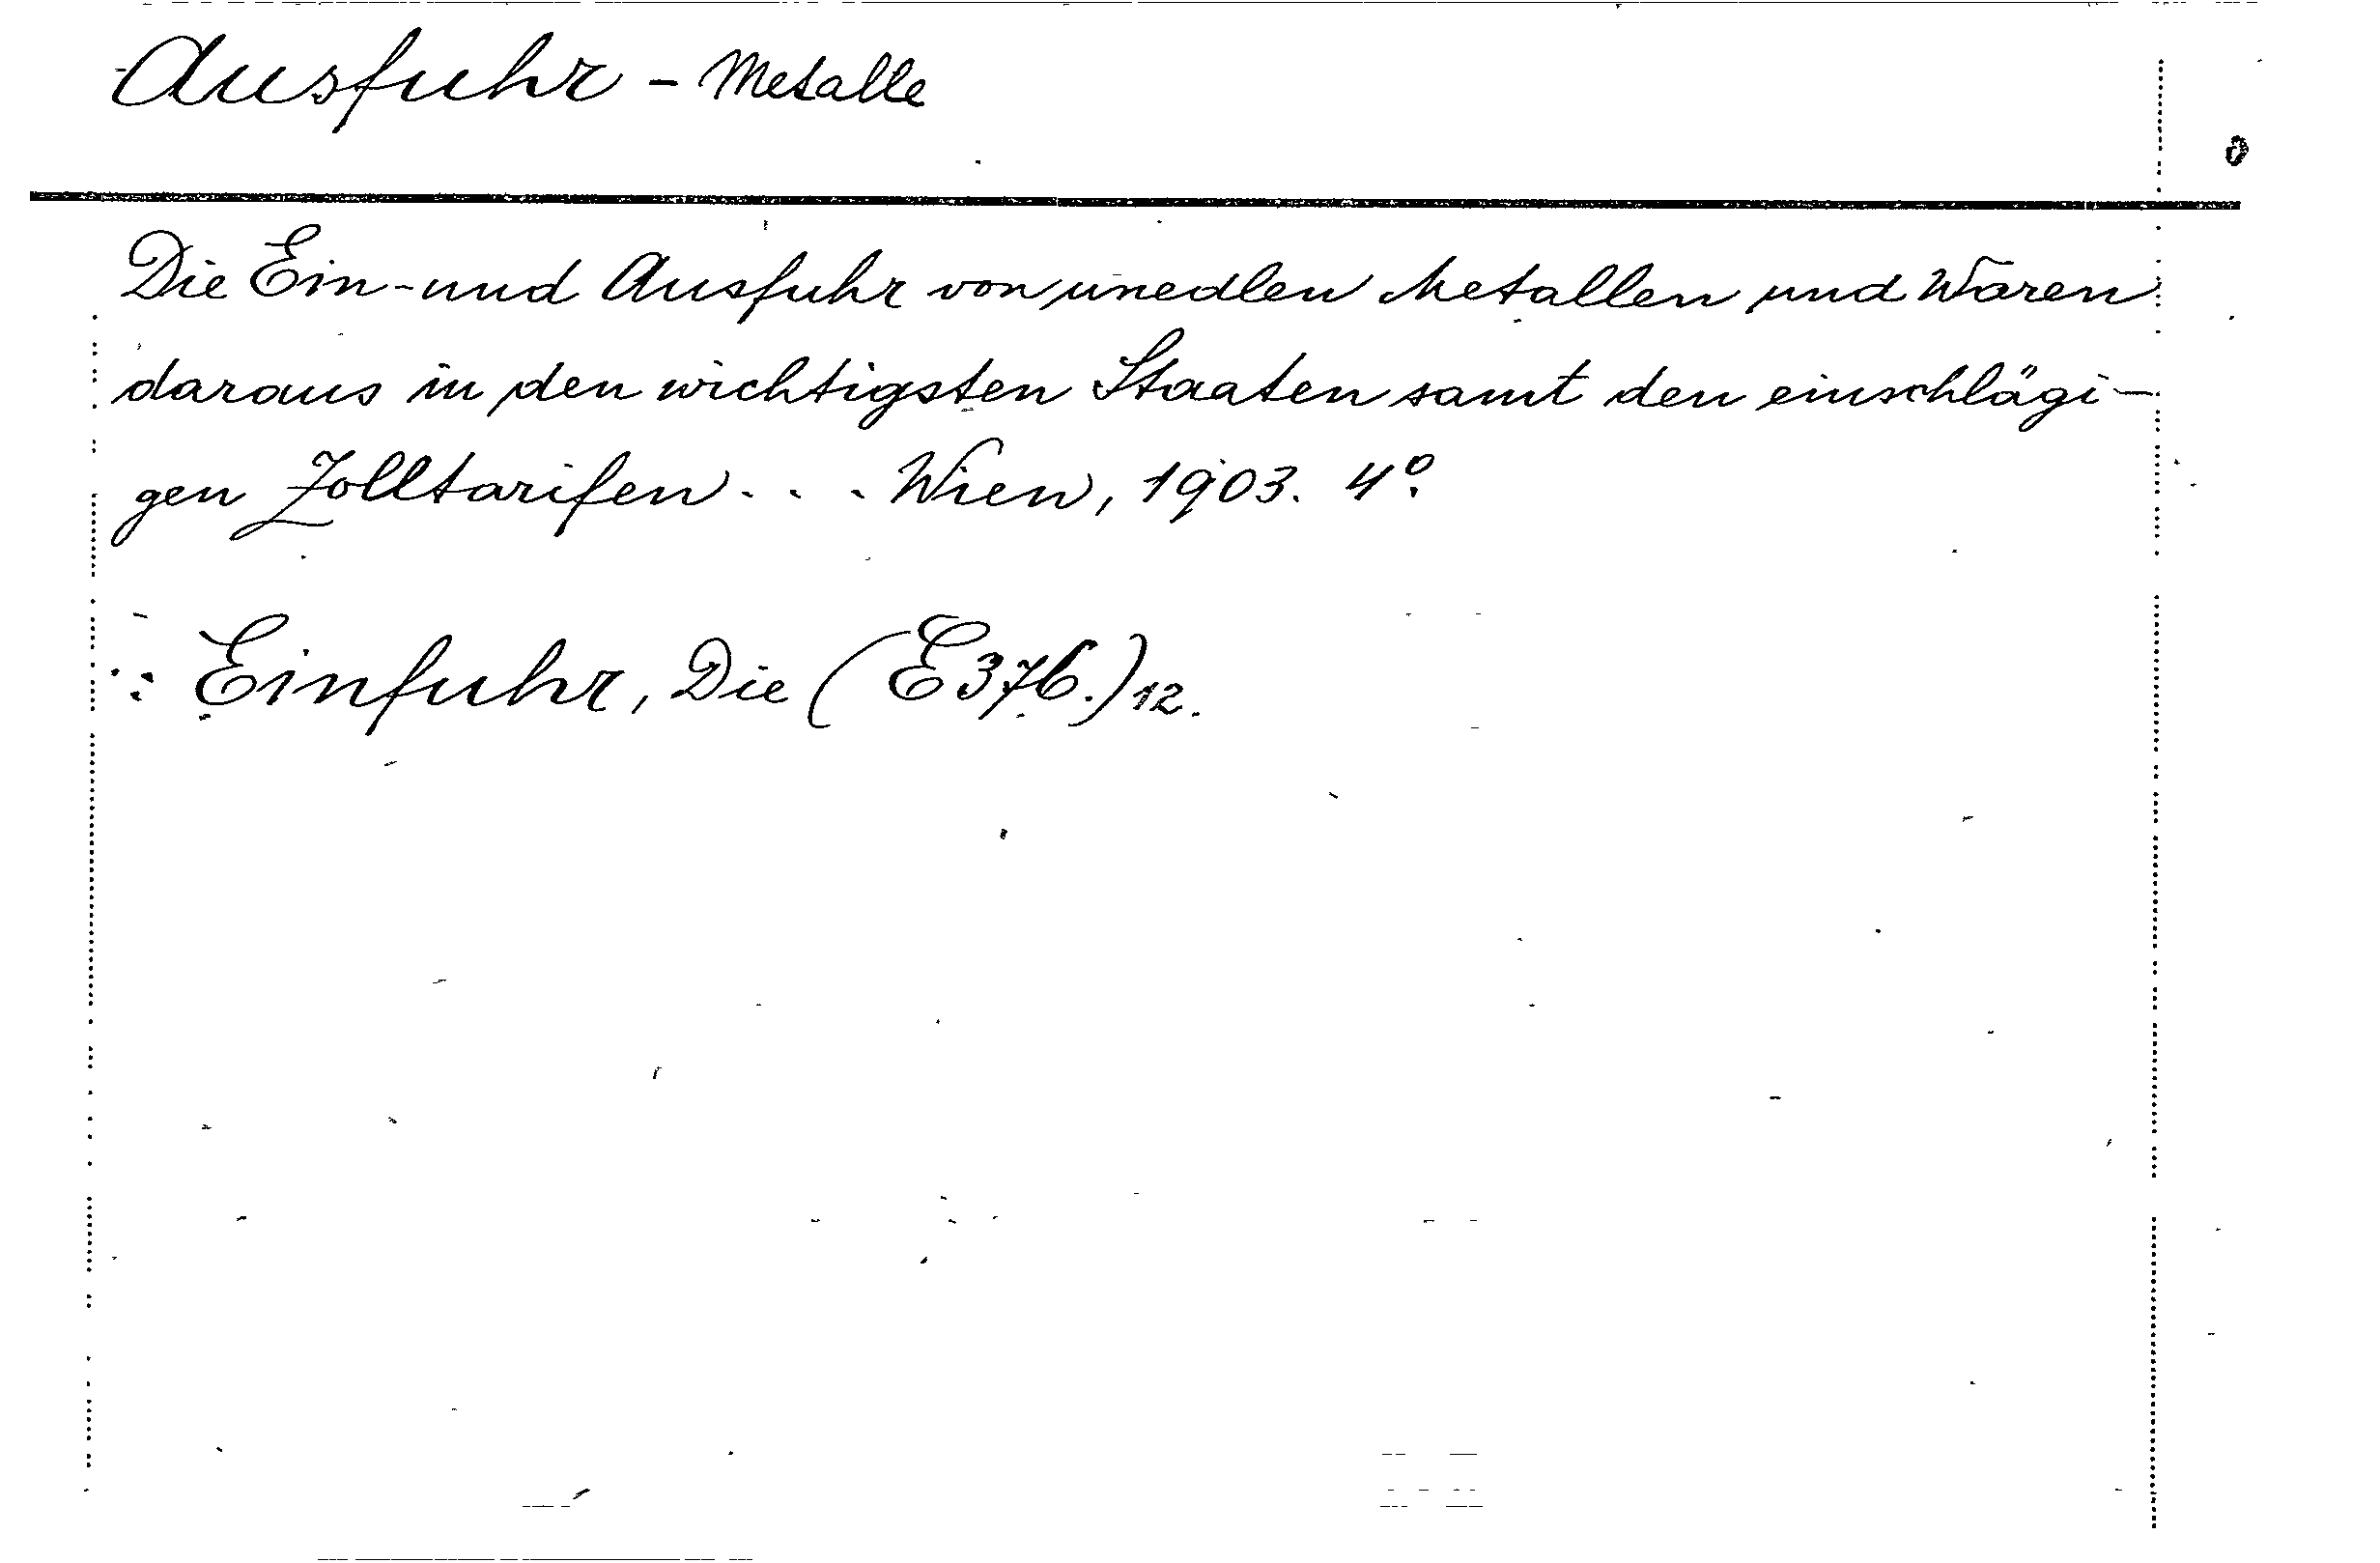 Ausfuhr - Metalle
Die Ein- und Ausfuhr von unedlen Metallen und Waren
daraus in den wichtigsten Staaten samt den einschlägi-
gen Zolltarifen . . . Wien, 1903. 4°.
: Einfuhr, Die (E 376.) 12.